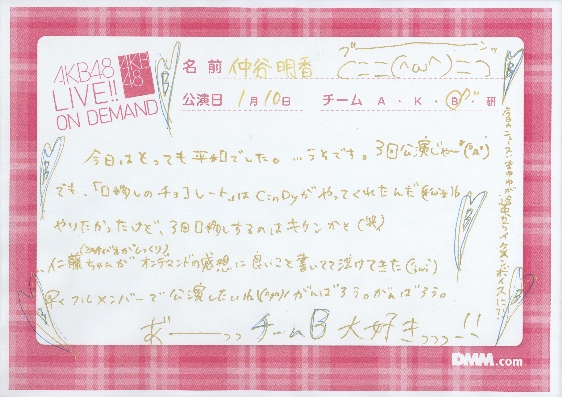 AKB48
LIVE!!
ON DEMAND
AKB
48
名前 仲谷明香
ブーーーーン
⊂二二(^ω^)二⊃
公演日 1月10日 チーム A・K・B・研
今日はとっても平和でした。…うそです。3回公演じゃー
でも、「口移しのチョコレート」はCinDyがやってくれたんだ
やりたかったけど、3回口移しするのはキケンかと(笑)
仁藤ちゃんがオンデマンドの感想に良いこと書いてて泣けてきた
早くフルメンバーで公演したいね! がんばろうのがんばろう。
おーーーっっ チームB 大好きっっっー!!
今日のニュース:
B
DMM.com